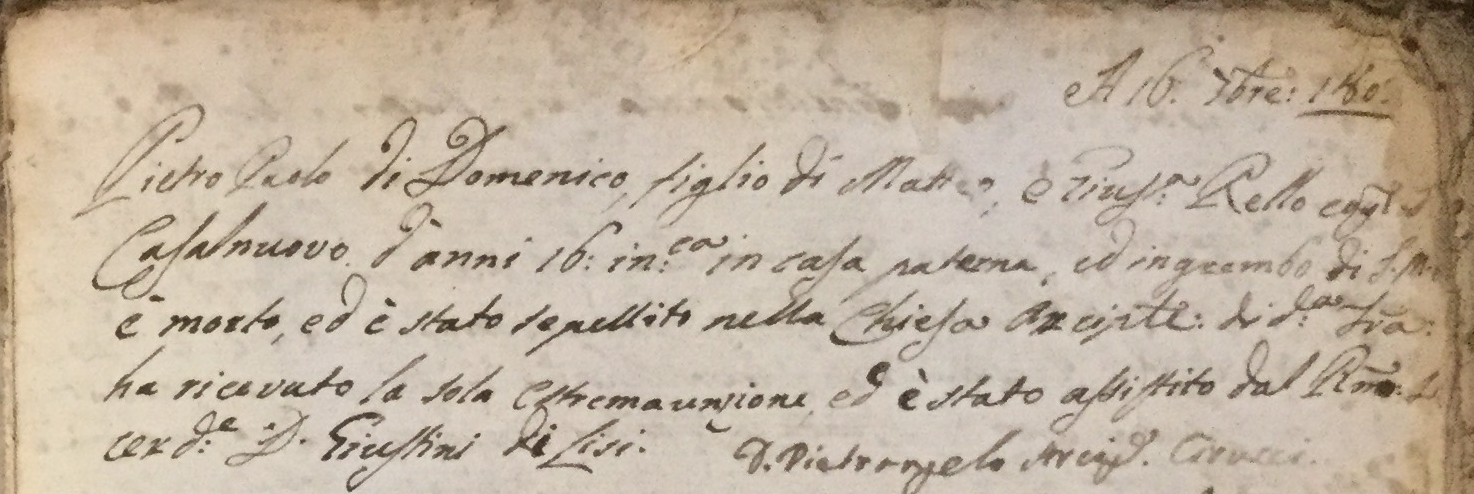 A 16. 7bre: 180
Pietro Paolo di Domenico, figlio di Matteo, e Giusᵃ Rello
Casalnuovo. d'anni 16: in:ᶜᵃ in casa paterna, ed in grembo di S. M.
è morto, ed è stato sepellito nella Chiesa Arcipte: di d:ᵃ Tra:
ha ricevuto la sola estremaunzione, ed è stato assistito dal Rmo:
cerd:ᵉ D. Giustini di Lisi. D. Pietrangelo Arcip.